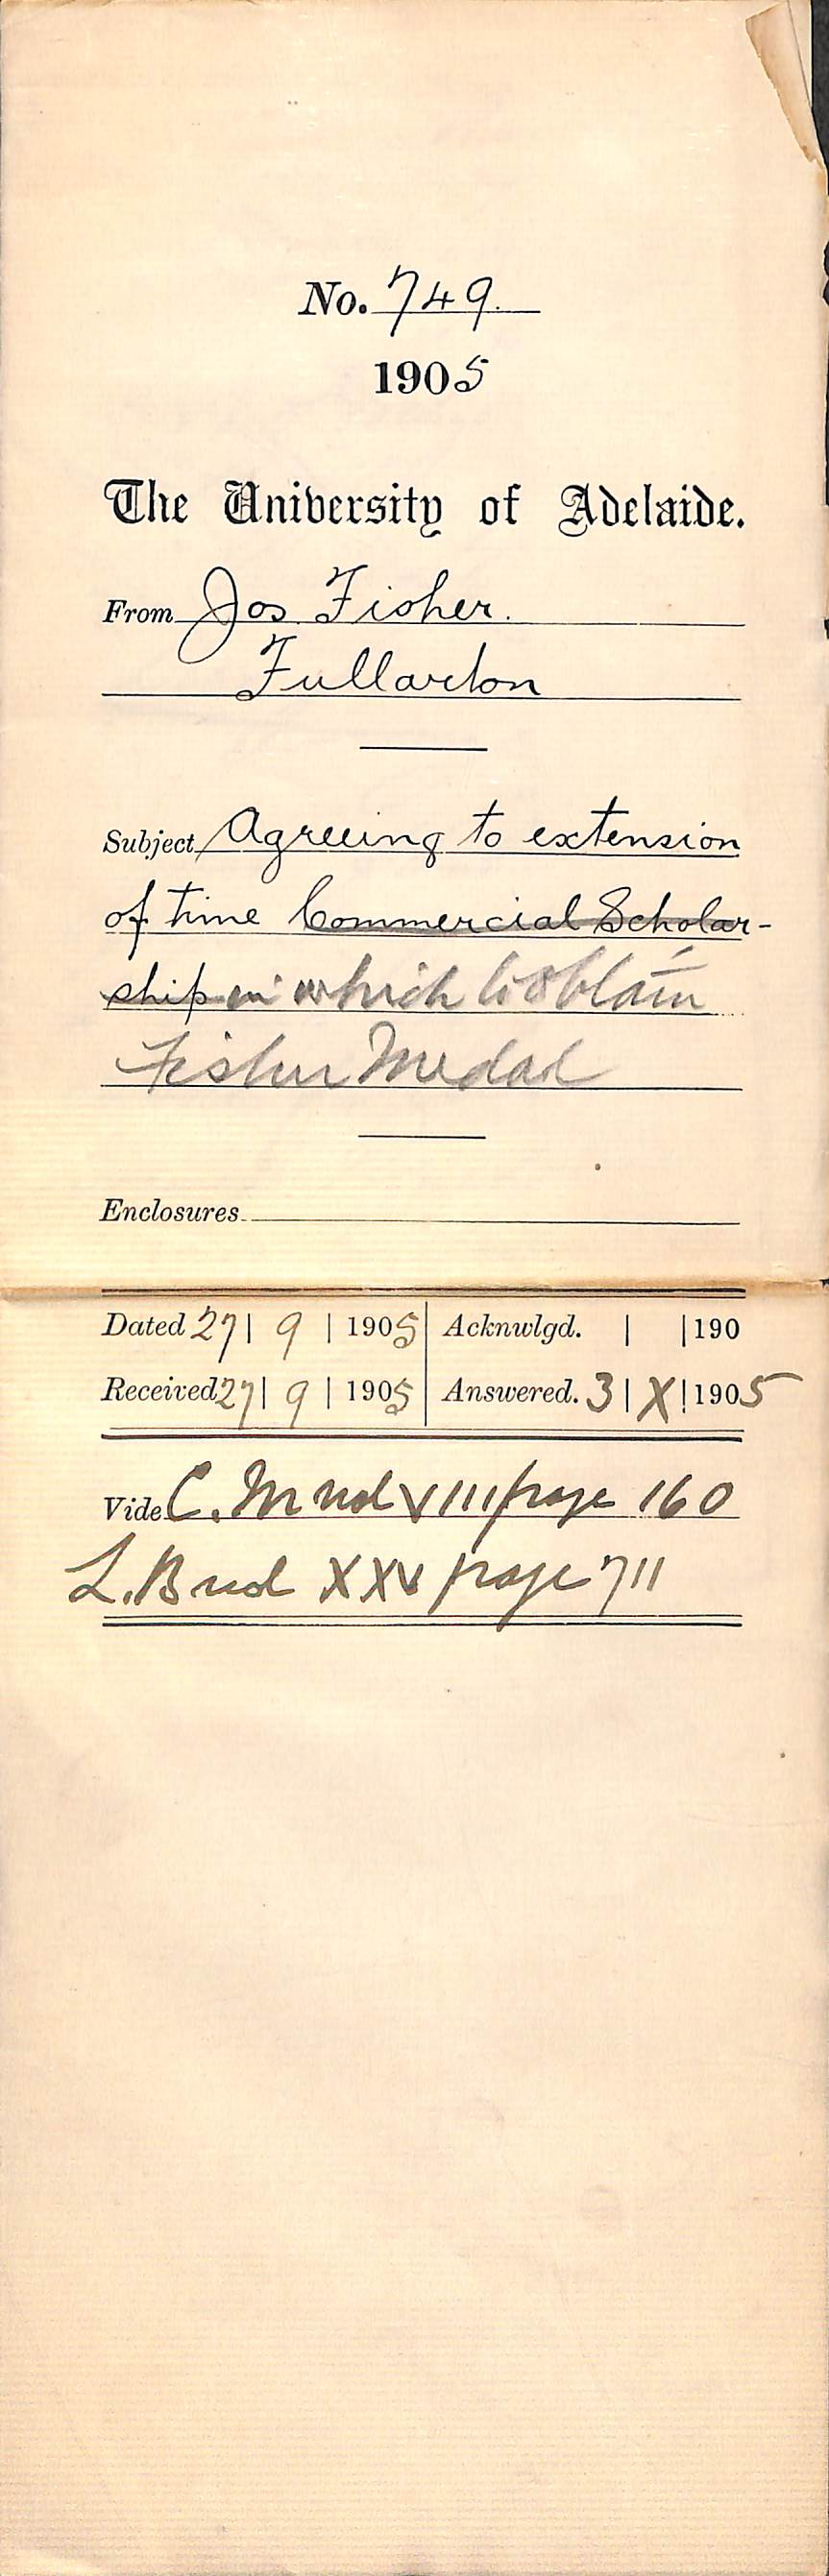 No. 749.
1905
The University of Adelaide.
From Jos Fisher.
Fullarton
Subject Agreeing to extension
of time Commercial Scholar-
ship in which to obtain
Fisher Medal
Enclosures
Dated 27 | 9 | 1905 | Acknwlgd. | | 190
Received 27 | 9 | 1905 | Answered. 3 | X | 1905
Vide C. M vol VIII page 160
L. B vol XXV page 711